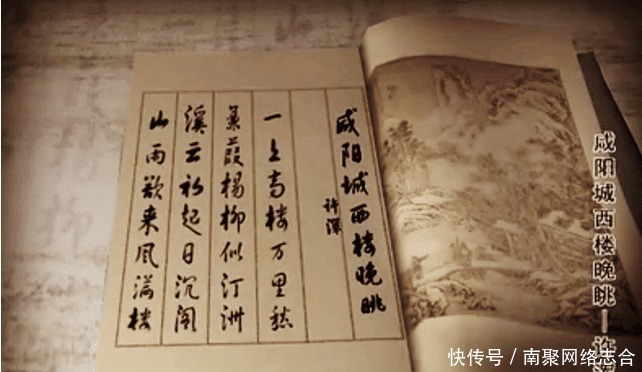 咸阳城西楼晚眺
许浑
一上高楼万里愁
蒹葭杨柳似汀洲
溪云初起日沉阁
山雨欲来风满楼
咸阳城西楼晚眺—许
快传号 / 南聚网络志合